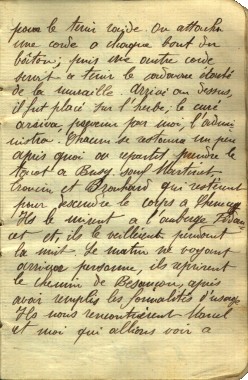 pour le tenir raide. On attacha
une corde a chaque bout du
bâton, puis une autre corde
servit a tenir le cadavre écarté
de la muraille. Arrivé au dessus,
il fut placé sur l'herbe, le curé
arriva, prévenu par moi, l'admi
nistra. Chacun se restaura un peu
après quoi on repartit prendre le
à Busy, sauf Martinet,
et qui restèrent
pour descendre le corps a
Ils le mirent a l'auberge
et ils le veillèrent pendant
la nuit. Le matin ne voyant
arriver personne, ils reprirent
le chemin de Besançon, après
avoir remplis les formalités d'usage
Ils nous rencontrèrent Marcel
et moi qui allions voir a